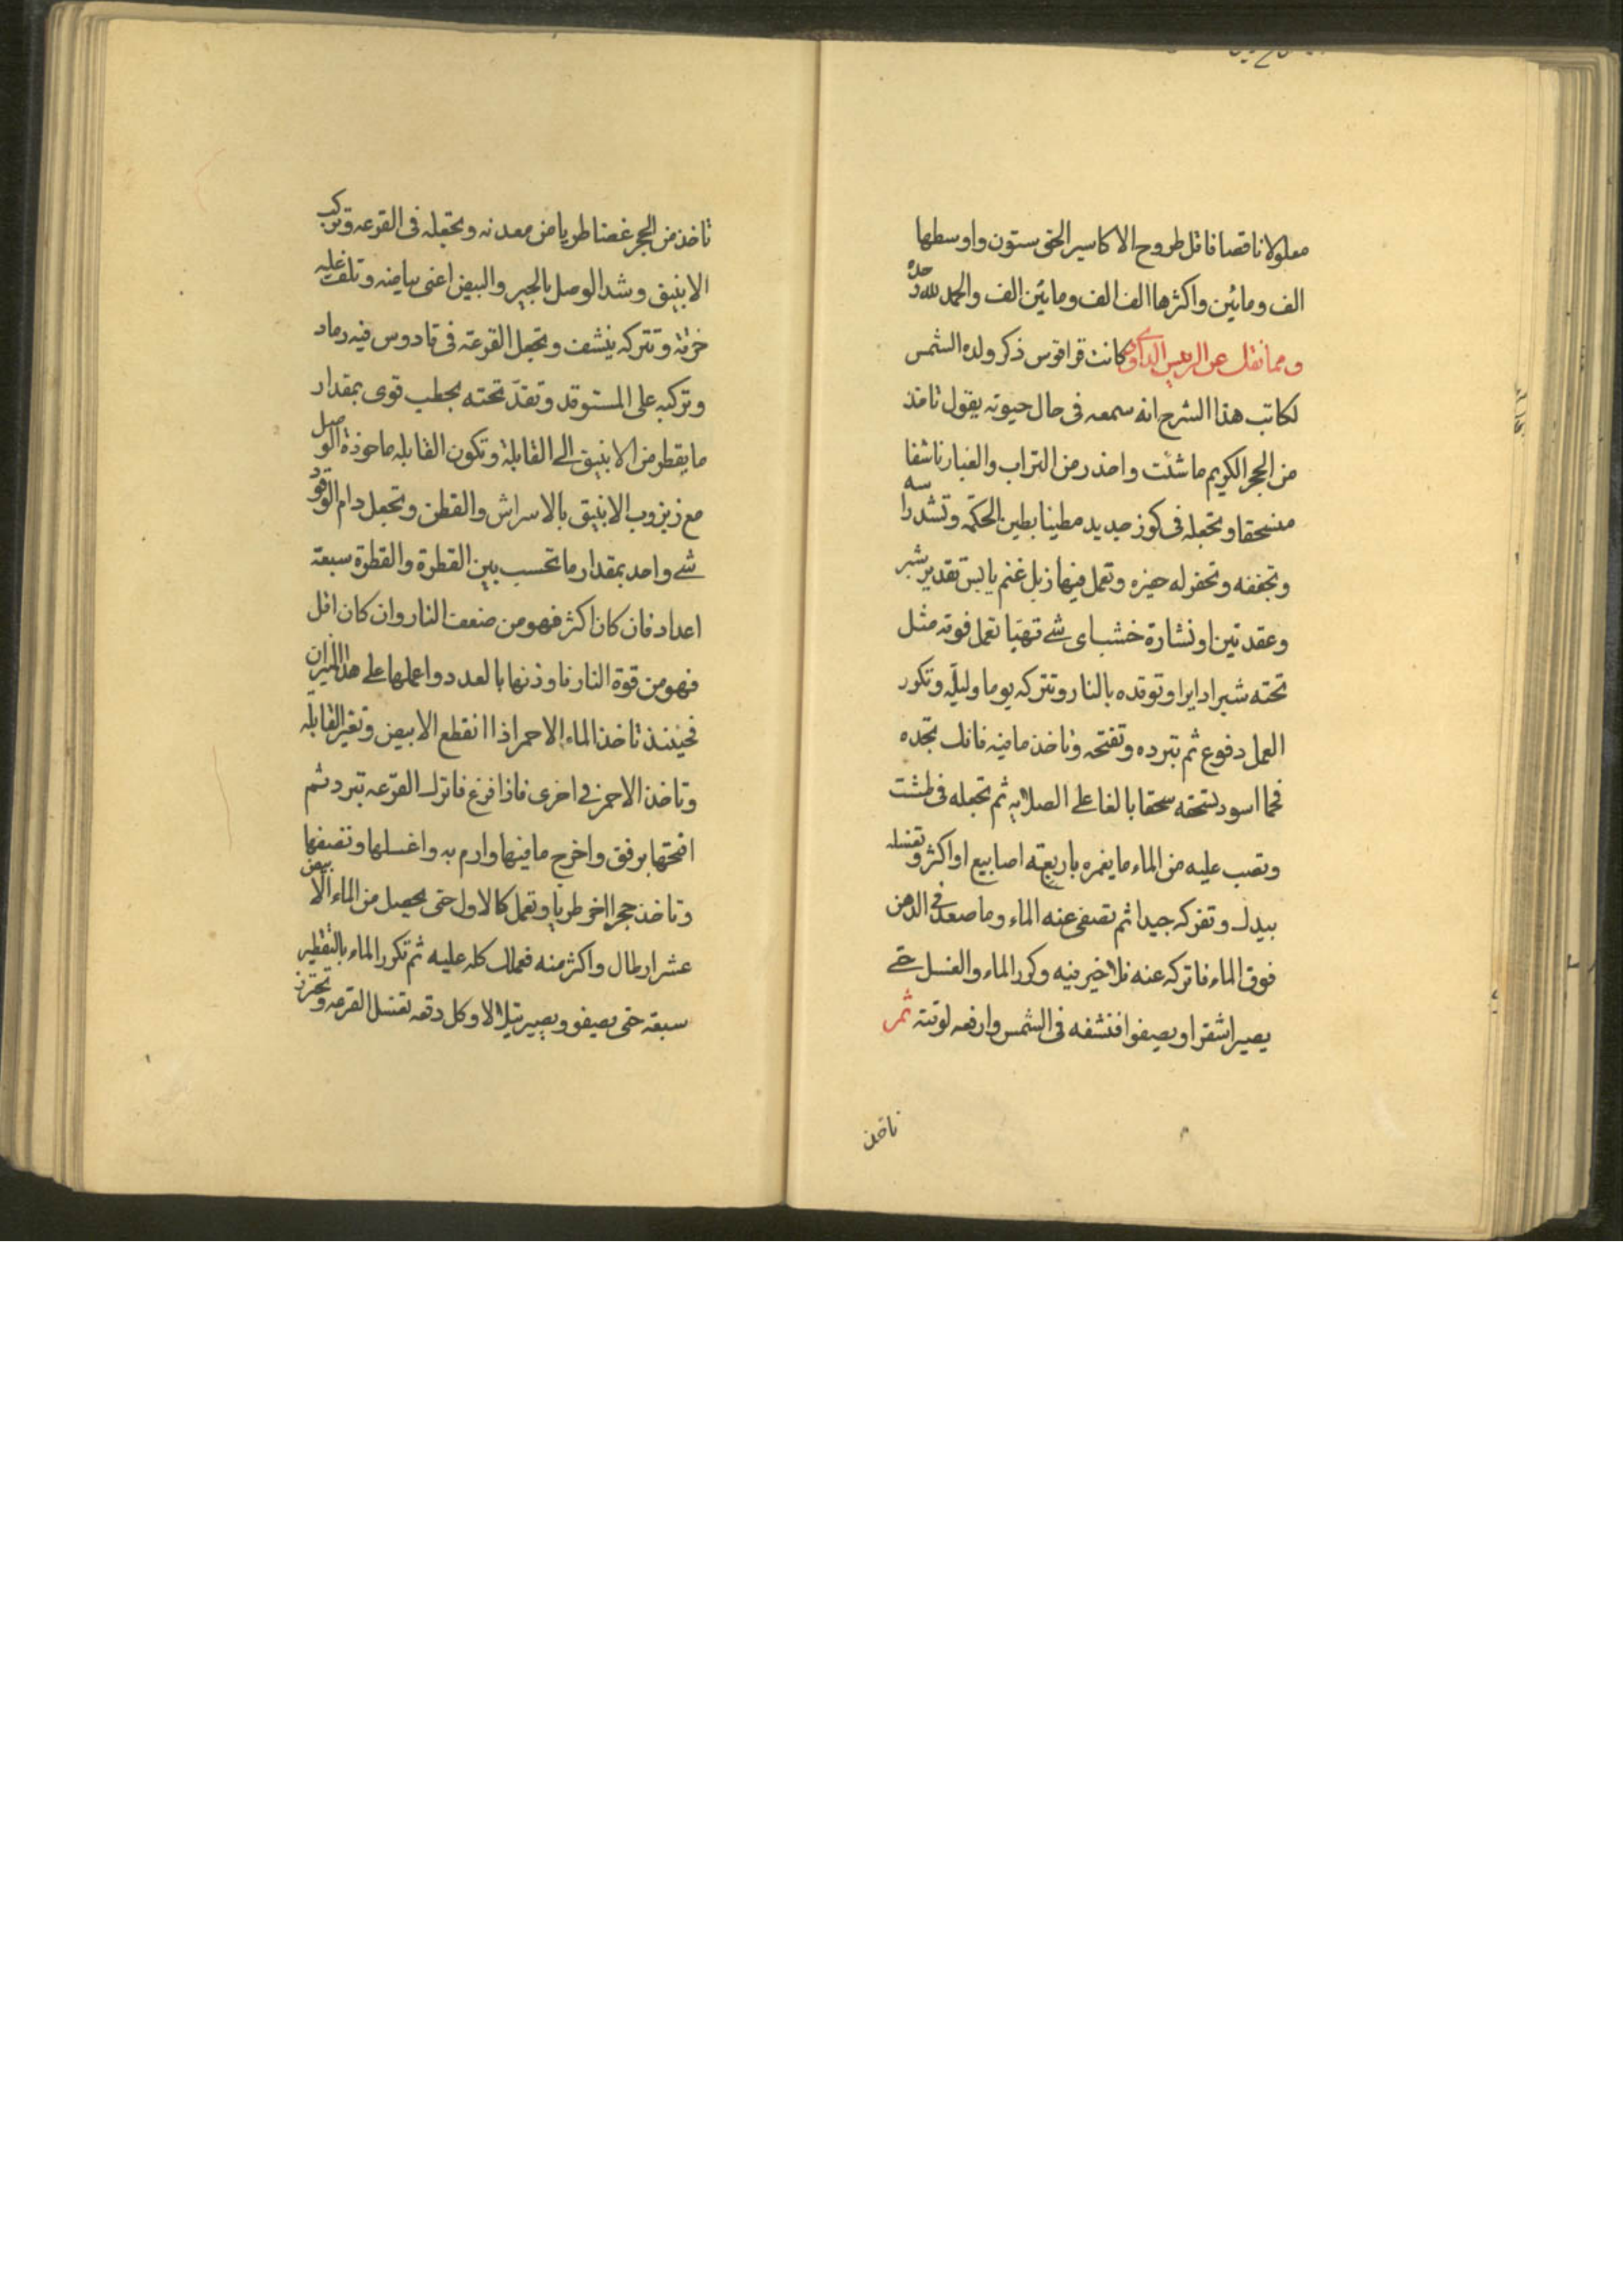 معلولا ناقصا فاقل طروح الاكاسير الحق ستون واوسطها
الف ومائين واكثرها الف الف ومائين الف والحمد لله وحده
ومما نقل عن الريس كانت قراقوس ذكر ولده الشمس
لكاتب هذا الشرح انه سمعه فى حال حيوته يقول تاخذ
من الحجر الكريم ما شئت واحذر من التراب والغبار ناشفا
منسحقا وتجعله فى كوز جديد مطينا بطين الحكمة وتشد راسه
وتجففه وتحفر له حفره وتعمل فيها زبل غنم يابس تقدير شبر
وعقد تين او نشارة خشب اى شے تهيا تعمل فوقه مثل
تحته شبرا دايرا وتوقده بالنار وتتركه يوما وليله وتكور
العمل دفوع ثم تبرده وتفتحه وتاخذ ما فيه فانك تجده
فحما اسود تسحقه سحقا بالغا على الصلايه ثم تجعله فى طشت
وتصب عليه من الماء ما يغمره باربعة اصابيع او اكثر وتغسله
بيدك وتفركه جيدا ثم تصفى عنه الماء وما صعد فى الدهن
فوق الماء فاتركه عنه فلا خير فيه وكرر الماء والغسل حتى
يصير اشقرا ويصفوا فنشفه فى الشمس وارفعه لوقته ثم
تاخذ
تاخذ من الحجر غضا طريا من معدنه وتجعله فى القرعه وتركب
الانبيق وشد الوصل بالجير والبيض اعنى بياضه وتلف عليه
خرقة وتتركه ينشف وتجعل القرعة فى قادوس فيه رماد
وتركبه على المستوقد وتقد تحته بحطب قوى بمقدار
ما يقطر من الانبيق الى القابلة وتكون القابله ماخوذة الوصل
مع زبزوب الانبيق بالاسراش والقطن وتجعل دام الوقود
شے واحد بمقدار ما تحسب بين القطرة والقطرة سبعة
اعداد فان كان اكثر فهو من ضعف النار وان كان اقل
فهو من قوة النار فاوزنها بالعدد واعملها على هذا الميزان
فحينئذ تاخذ الماء الاحمر اذا انقطع الابيض وتغير القابله
وتاخذ الاحمر فى اخرى فاذا فرغ فاترك القرعه تبرد ثم
افتحها برفق واخرج ما فيها وارم به واغسلها وتصفها
وتاخذ حجرا اخر طريا وتعمل كالاول حتى يحصل من الماء الابيض
عشر ارطال واكثر منه فعملك كله عليه ثم تكرر الماء بالتقطير
سبعة حتى يصفو ويصير يتلالا وكل دقعه تغسل القرعه وتحترز